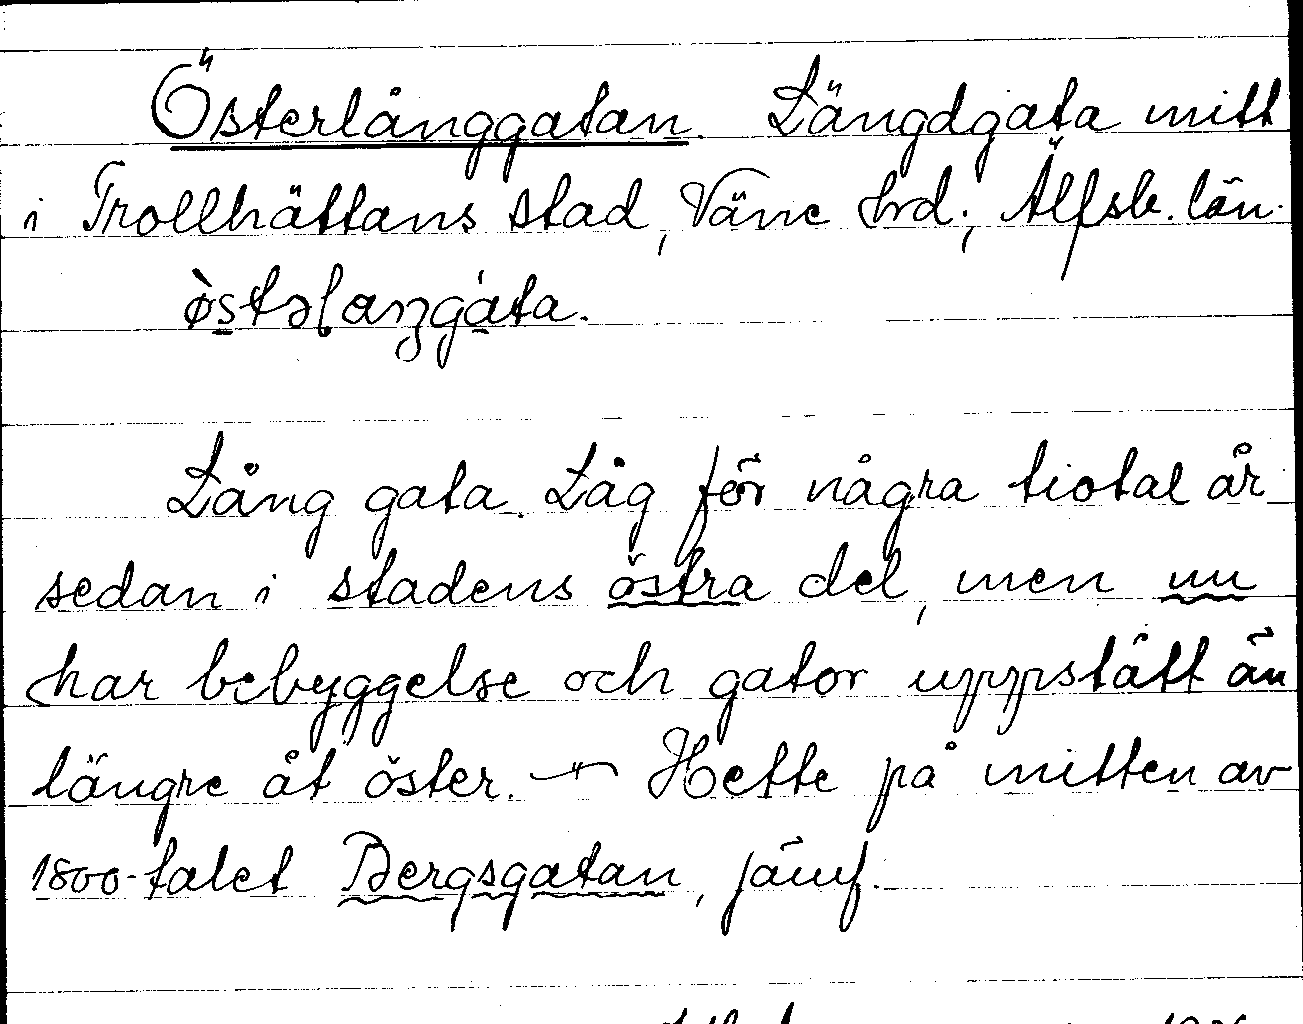 Österlånggatan. Längdgata mitt
i Trollhättans stad, Väne hrd; Älfsb. län.
östəlaŋgáta.
Lång gata. Låg för några tiotal år
sedan i stadens östra del, men nu
har bebyggelse och gator uppstått än
längre åt öster. — Hette på mitten av
1800-talet Bergsgatan, jämf.